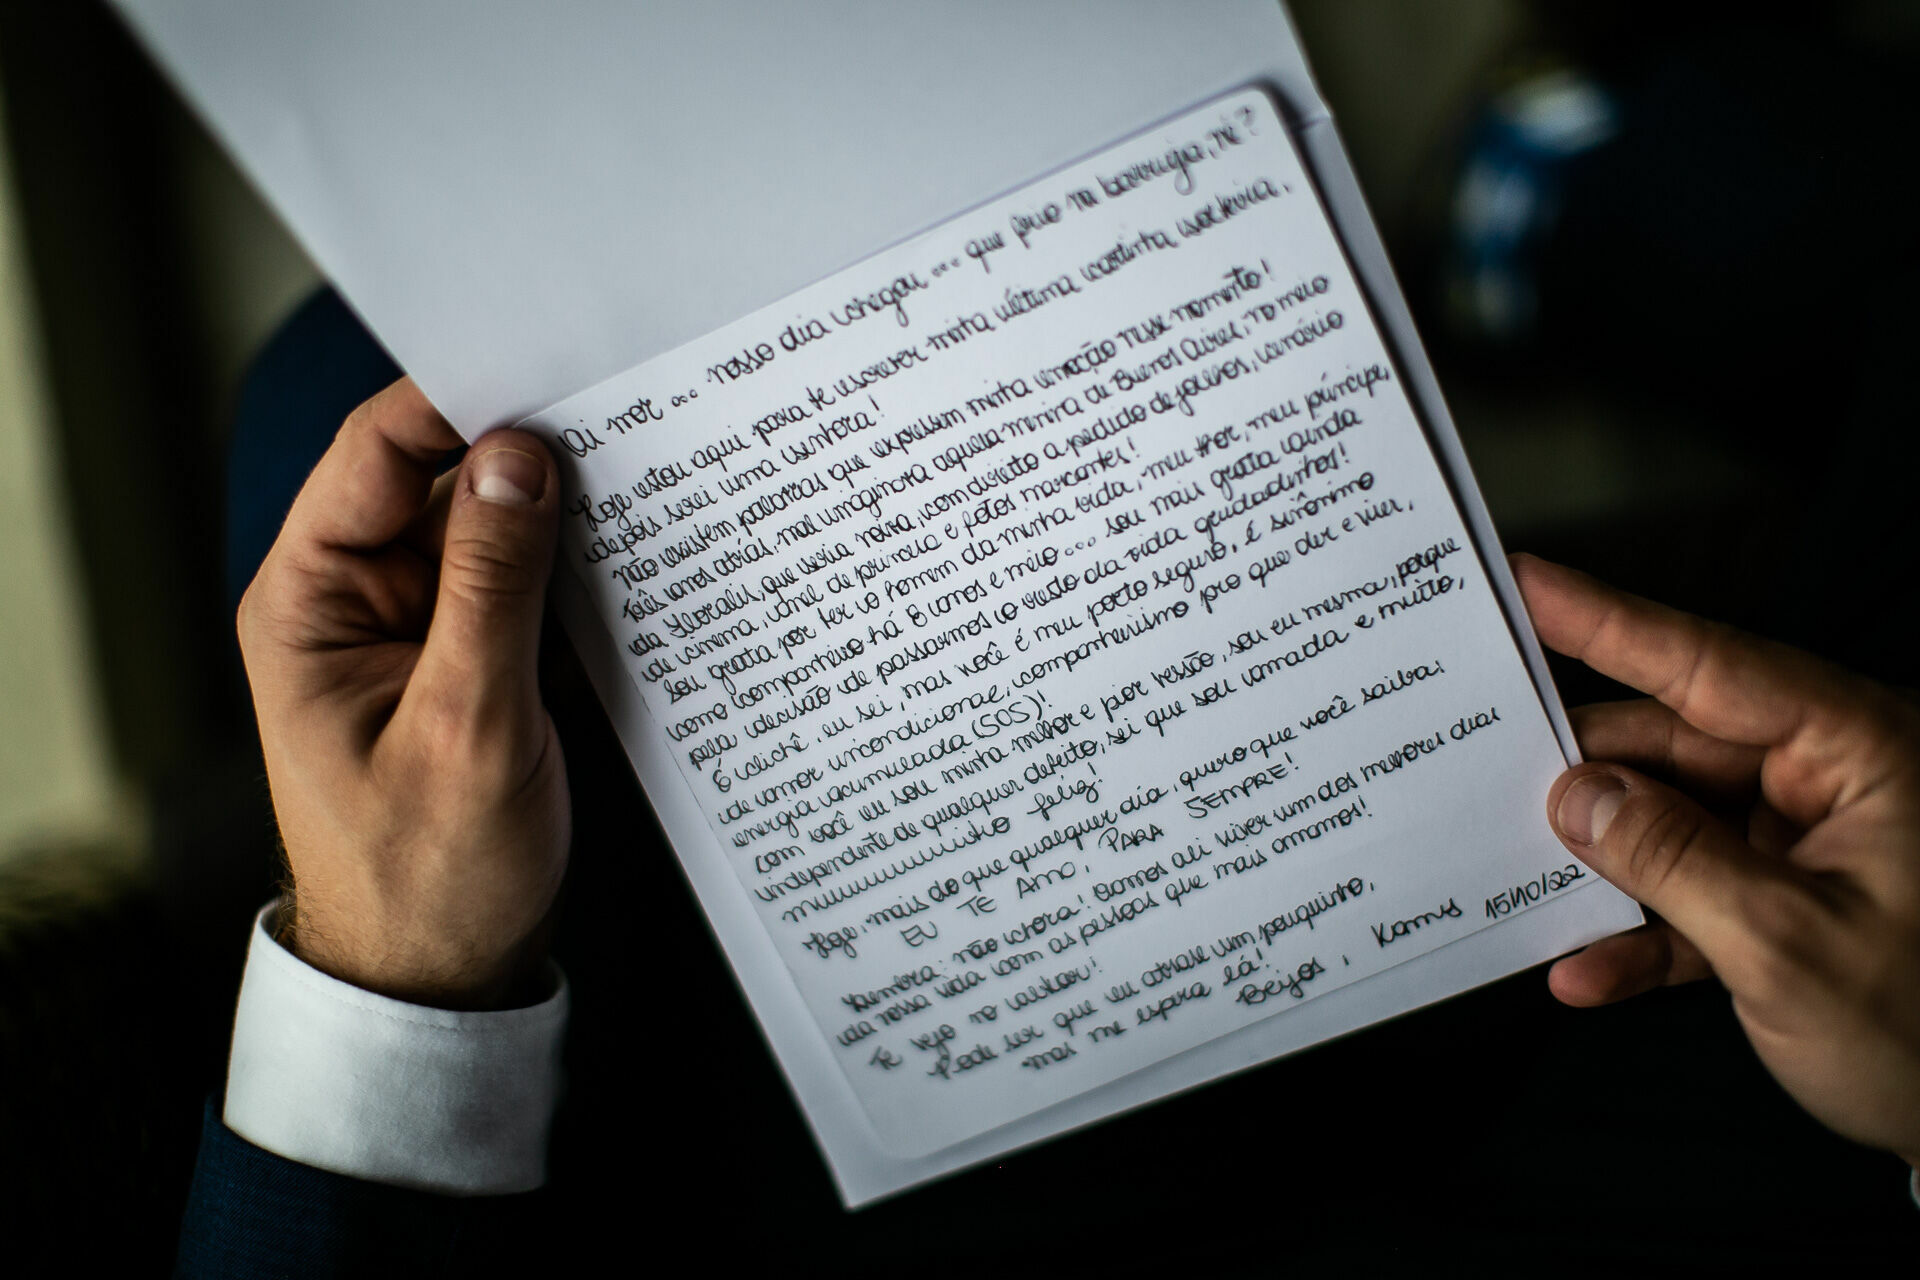 Oi mor ... nosso dia chegou ... que frio na barriga, né?
Hoje estou aqui para te escrever minha última cartinha solteira,
depois serei uma senhora!
Não existem palavras que expressem minha emoção nesse momento!
Três anos atrás, mal imaginava aquela menina de Buenos Aires, no meio
da Floralis, que seria noiva, com direito a pedido de joelhos, cenário
de cinema, anel de princesa e fotos marcantes!
Sou grata por ter o homem da minha vida, meu mor, meu príncipe,
como companheiro há 8 anos e meio ... sou mais grata ainda
pela decisão de passarmos o resto da vida grudadinhos!
É clichê, eu sei, mas você é meu porto seguro, é sinônimo
de amor incondicional, companheirismo pro que der e vier,
energia acumulada (SOS)!
Com você eu sou minha melhor e pior versão, sou eu mesma, porque
independente de qualquer defeito, sei que sou amada e muito,
muuuuuuito feliz!
Hoje, mais do que qualquer dia, quero que você saiba:
EU TE AMO, PARA SEMPRE!
Lembra: não chora! Vamos ali viver um dos melhores dias
da nossa vida com as pessoas que mais amamos!
Te vejo no altar!
Pode ser que eu atrase um pouquinho,
mas me espera lá!
Beijos, Kamys 15/10/22